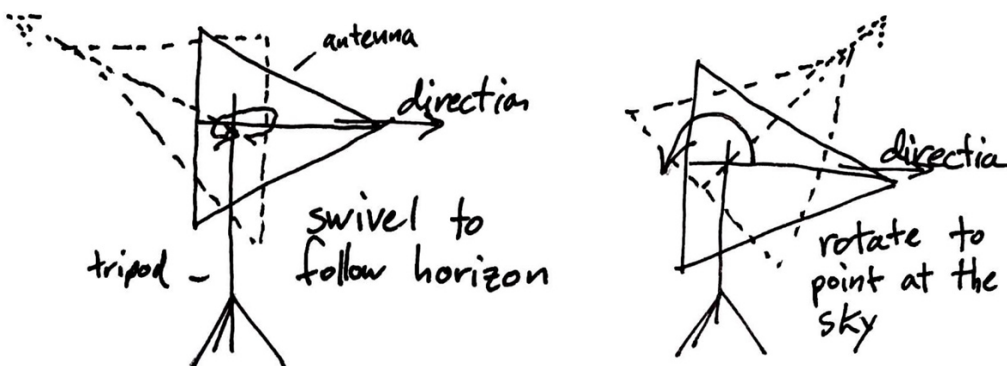 antenna
direction
swivel to
follow horizon
tripod
direction
rotate to
point at the
sky